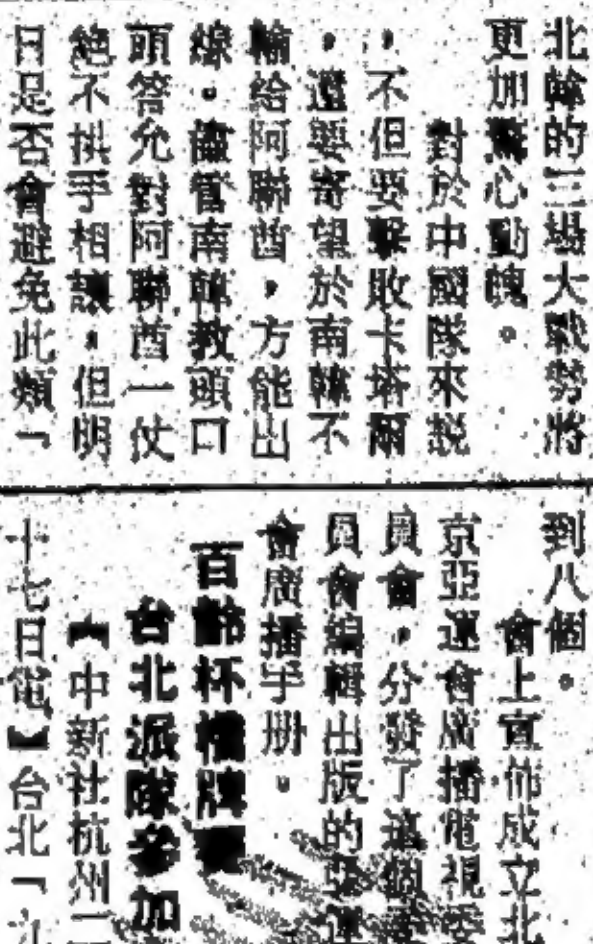 北韓的三場大戰勢將
更加驚心動魄。
對於中國隊來説
，不但要擊敗卡塔爾
，還要寄望於南韓不
輸給阿聯酋，方能出
線。儘管南韓教頭口
頭答允對阿聯酋一仗
絕不拱手相讓，但明
日是否會避免此類「
到八個。
會上宣佈成立北
京亞運會廣播電視委
員會，分發了這個委
員會編輯出版的亞運
會廣播手册。
百齡杯橋牌賽
台北派隊參加
【中新社杭州二
十七日電】台北「